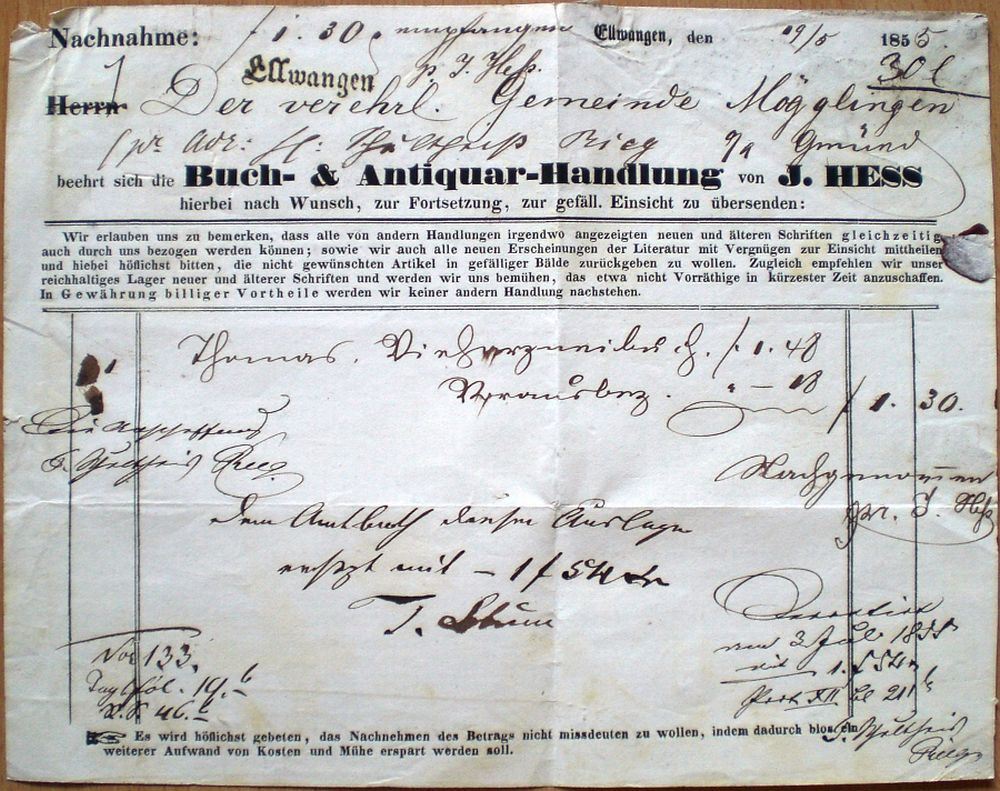 Nachnahme: f 1. 30. empfangen Ellwangen, den 19/5 1855.
Ellwangen p. J. Hess.
Herrn Der verehrl. Gemeinde Mögglingen
pr. Adr: H. Schultheiß Rieg Gmünd
beehrt sich die Buch- & Antiquar-Handlung von J. HESS
hierbei nach Wunsch, zur Fortsetzung, zur gefäll. Einsicht zu übersenden:
Wir erlauben uns zu bemerken, dass alle von andern Handlungen irgendwo angezeigten neuen und älteren Schriften gleichzeitig
auch durch uns bezogen werden können; sowie wir auch alle neuen Erscheinungen der Literatur mit Vergnügen zur Einsicht mittheilen
und hiebei höflichst bitten, die nicht gewünschten Artikel in gefälliger Bälde zurückgeben zu wollen. Zugleich empfehlen wir unser
reichhaltiges Lager neuer und älterer Schriften und werden wir uns bemühen, das etwa nicht Vorräthige in kürzester Zeit anzuschaffen.
In Gewährung billiger Vortheile werden wir keiner andern Handlung nachstehen.
1 Thomas. Vieharzneibuch. f. 1. 48
Vorausbez. " — 18 f 1. 30.
Die Anschaffung
Schultheiß Rieg
Nachgenommen
pr. J. Hess
dem Amtboth diesen Auslage
ersezt mit – 1 f 54 xr
T.
am 3 Juli 1855
mit 1 f 54 xr
No 133.
19.
46.
Es wird höflichst gebeten, das Nachnehmen des Betrags nicht missdeuten zu wollen, indem dadurch blos ein
weiterer Aufwand von Kosten und Mühe erspart werden soll.
Schultheiß
Rieg